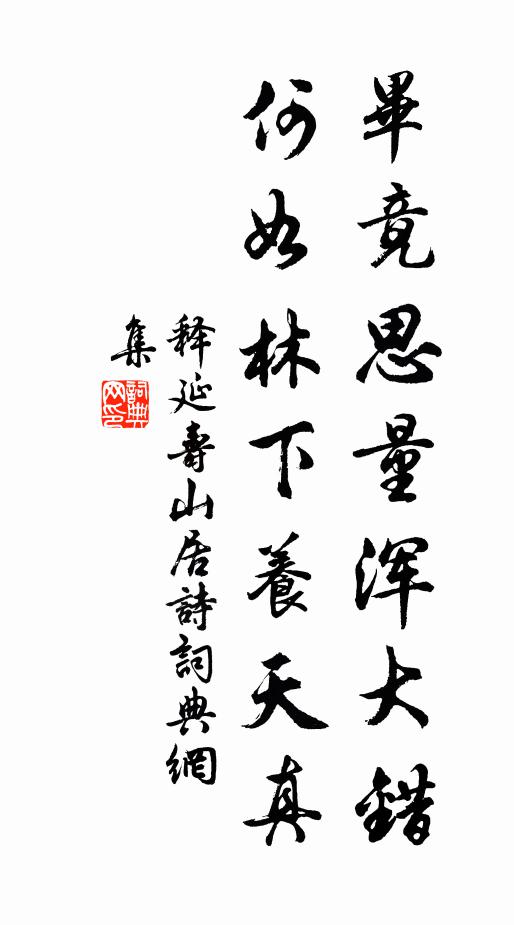 畢竟思量浑大錯
何如林下養天真
释延壽山居詩詞典網
集
詞典網印